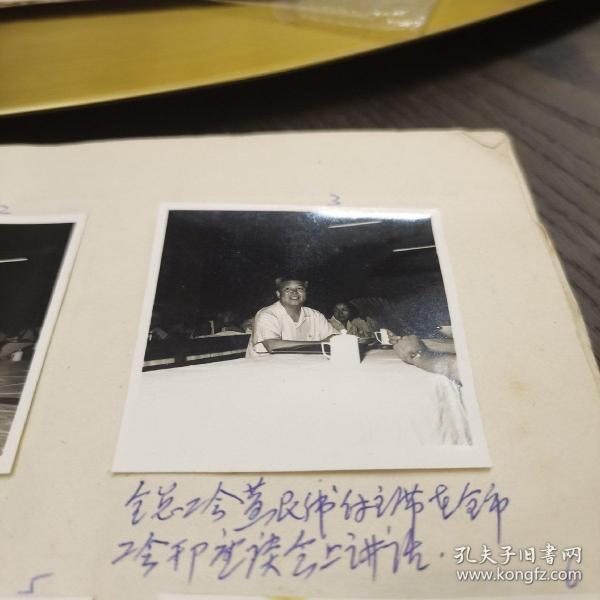 2
3
全总工会黄民伟付主席在全市
工会和座谈会上讲话.
5
6
孔夫子旧书网
www.kongfz.com